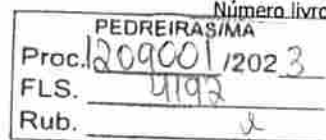 Número livro
PEDREIRAS/MA
Proc. 1209001 /2023
FLS. 4192
Rub.